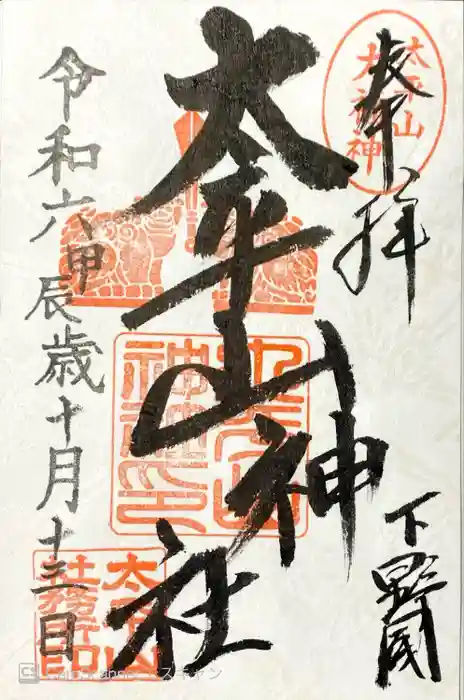 奉拝
太平山
大神神
下野国
太平山神社
太平山
神社印
太平山
社務所印
令和六甲辰歳十月十三日